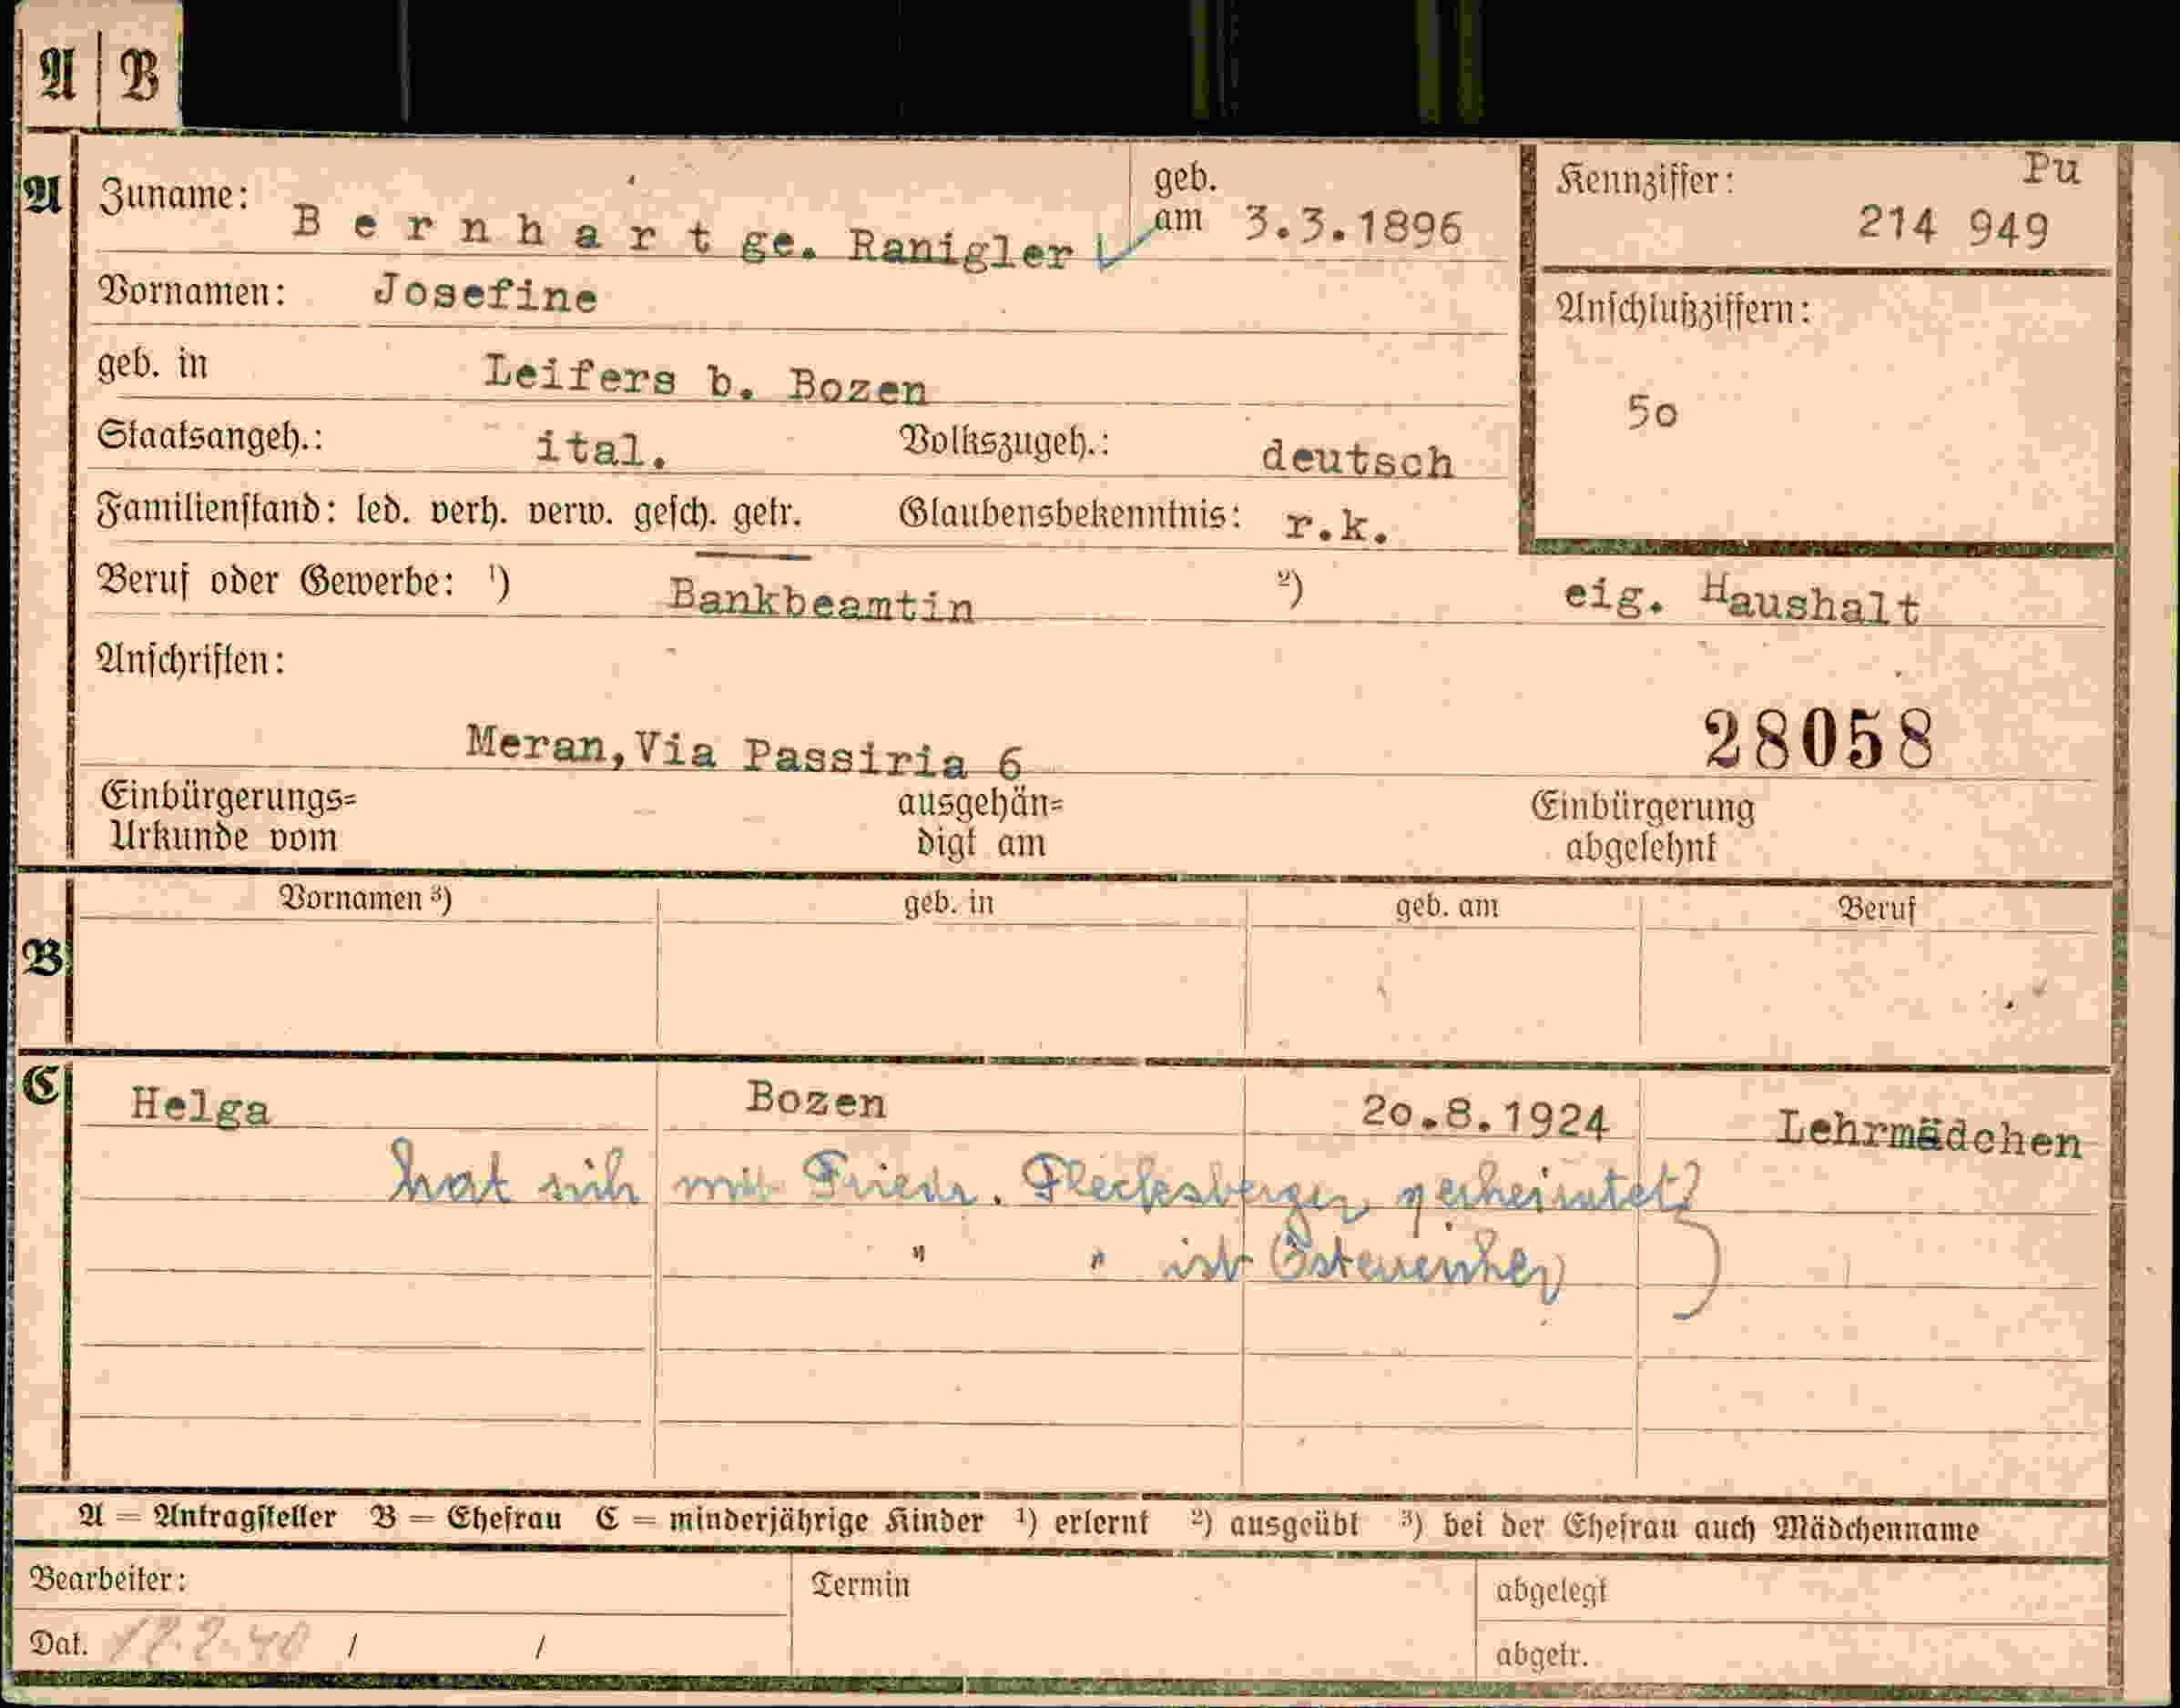 A B
A Zuname: Bernhart ge. Ranigler geb. am 3.3.1896
Kennziffer: Pu 214 949
Vornamen: Josefine
Anschlußziffern: 5o
geb. in Leifers b. Bozen
Staatsangeh.: ital. Volkszugeh.: deutsch
Familienstand: led. verh. verw. gesch. getr. Glaubensbekenntnis: r.k.
Beruf oder Gewerbe: ¹) Bankbeamtin ²) eig. Haushalt
Anschriften:
Meran,Via Passiria 6 28058
Einbürgerungs= Urkunde vom ausgehän= digt am Einbürgerung abgelehnt
Vornamen ³) geb. in geb. am Beruf
B
C Helga Bozen 2o.8.1924 Lehrmädchen
hat sich mit Friedr. verheiratet
" " ist Österreicher
A = Antragsteller B = Ehefrau C = minderjährige Kinder ¹) erlernt ²) ausgeübt ³) bei der Ehefrau auch Mädchenname
Bearbeiter: Termin abgelegt
Dat. / / abgetr.